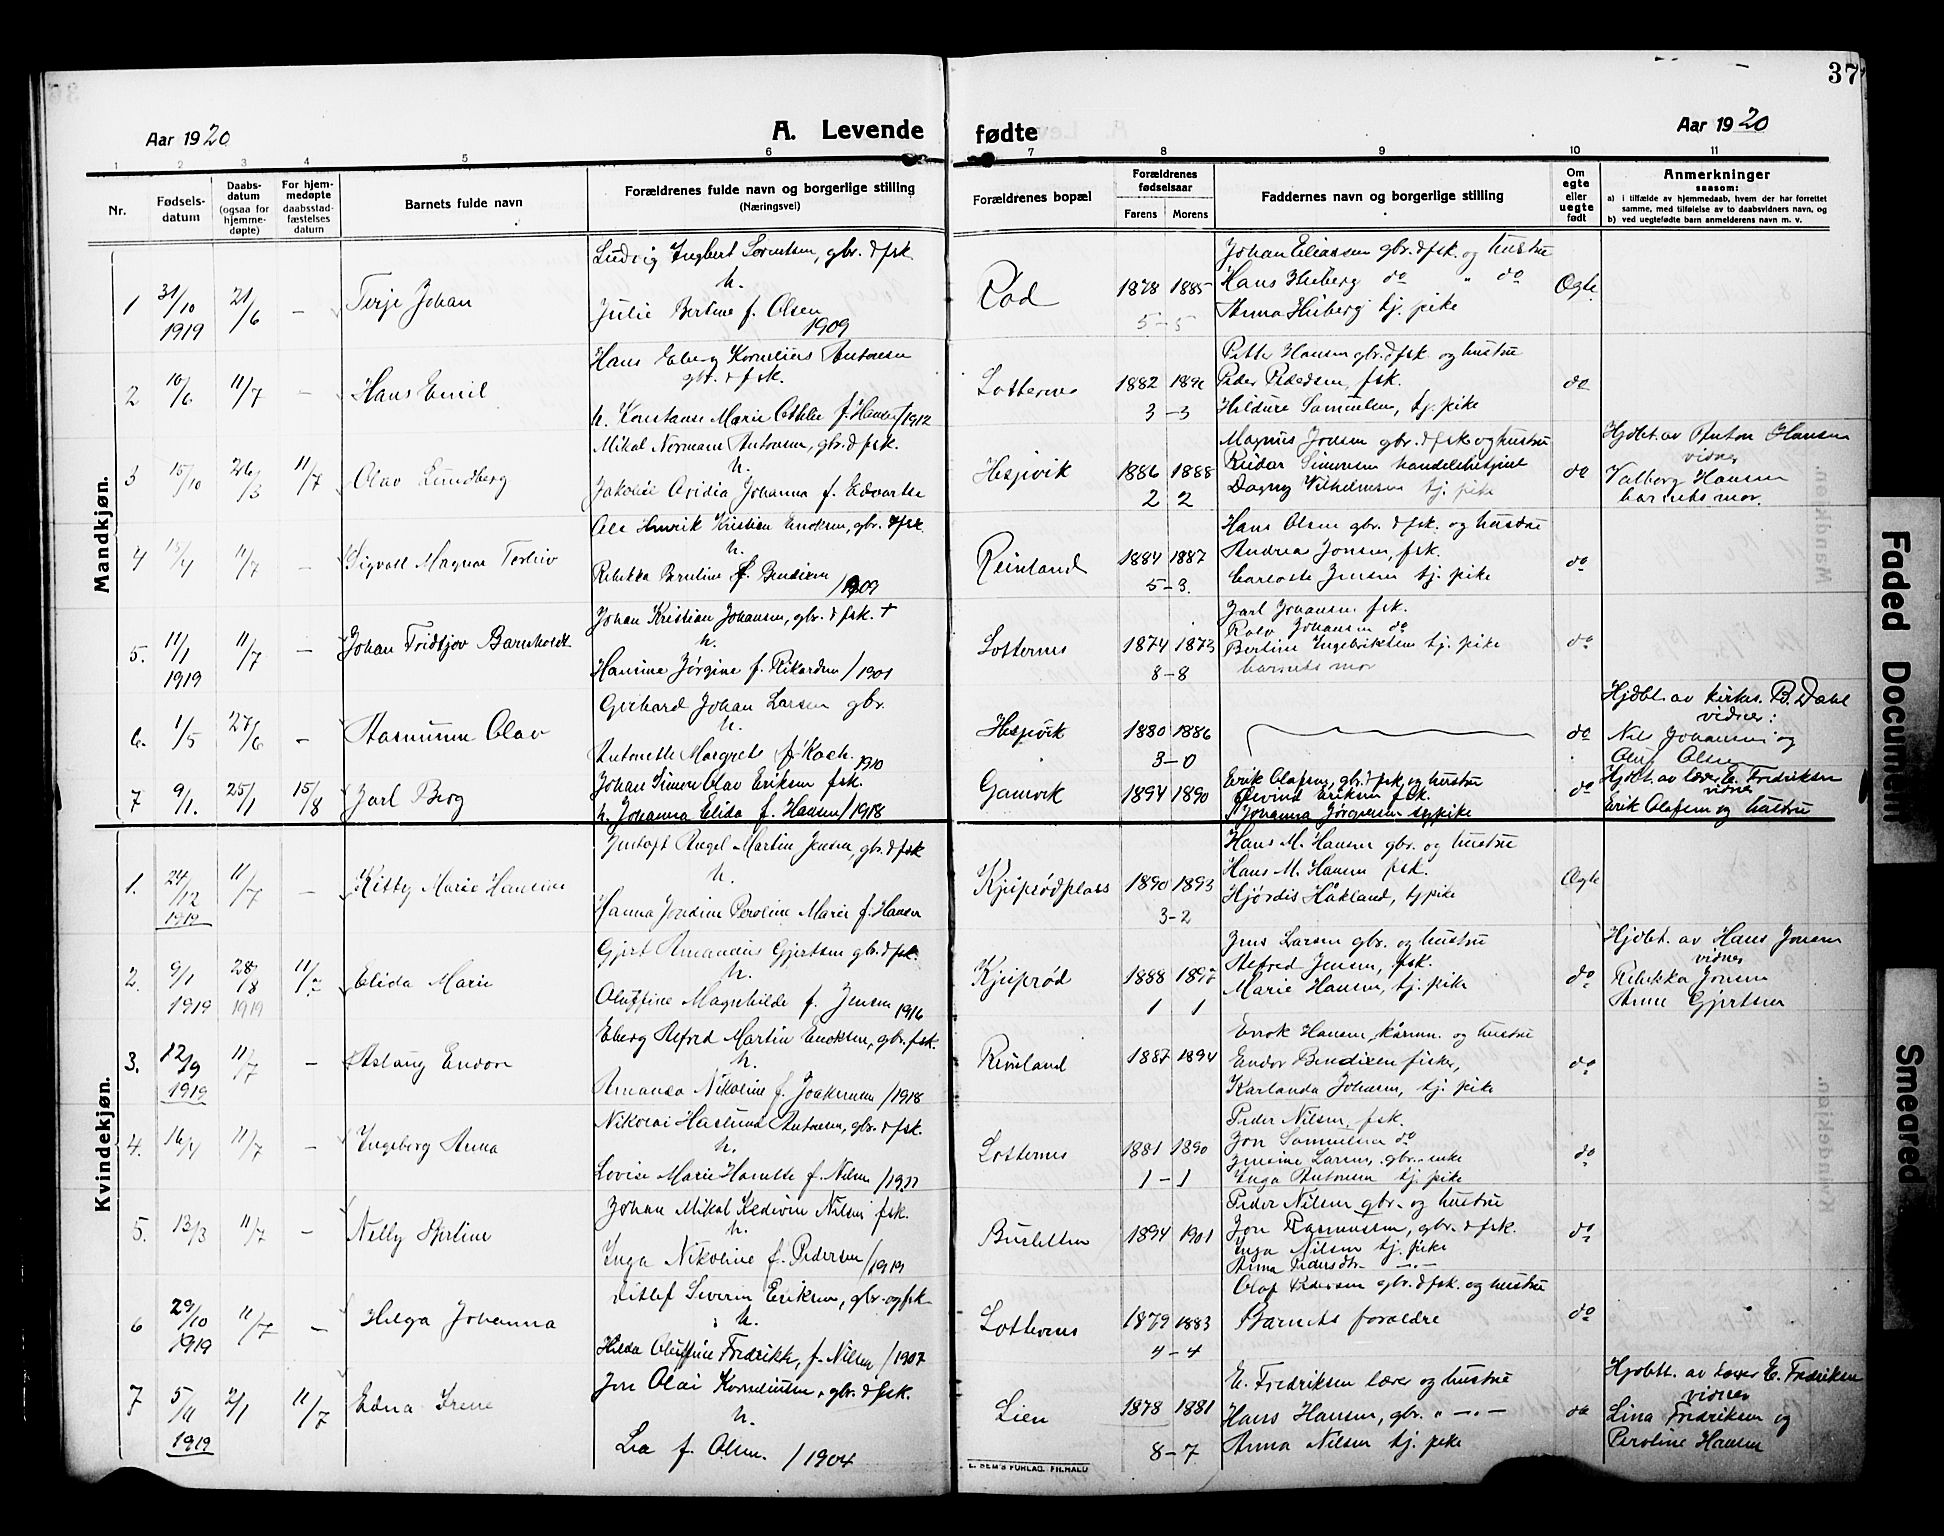 37
Aar 1920
A. Levende fødte
Aar 1920
1 2 3 4 5 6 7 8 9 10 11
Nr.
Fødsels-
datum
Daabs-
datum
(ogsaa for
hjemme-
døpte)
For hjem-
medøpte
daabsstad-
fæstelses
datum
Barnets fulde navn
Forældrenes fulde navn og borgerlige stilling
(Næringsvei)
Forældrenes bopæl
Forældrenes
fødselsaar
Farens Morens
Faddernes navn og borgerlige stilling
Om
egte
eller
uegte
født
Anmerkninger
saasom:
a) i tilfælde av hjemmedaab, hvem der har forrettet
samme, med tilføielse av to daabsvidners navn, og
b) ved uegtefødte barn anmelderens navn m. v.
Mandkjøn.
1 31/10 1919 21/6 – Terje Johan
Ludvig Ingbert Sorentsen, gbr. & fsk.
h.
Julie Bertine f. Olsen
1909
1878 1885
5 – 5
Johan Eliassen gbr. & fsk. og hustru
Hans Hiberg do " do
Anna Hiberg tj. pike
Ægte
2 10/6 11/7 – Hans Emil
Hans Eberg Kornelius Antonsen
gbr. & fsk.
h. Konstanse Marie Othilie f. Hansen/1912
Lotternes
1882
3 – 3
Petter Hansen gbr. & fsk. og hustru
Peder Pedersen, fsk.
Hildure Samuelsen, tj. pike
do
3 15/10 26/3 11/7 Olav Lundberg
Mikal Normann Antonsen, gbr. & fsk.
h.
Johanna f. Edvartsen
Hesjvik
1886 1888
2 2
Magnus Jonsen gbr. & fsk. og hustru
Reidar Simonsen handelsbetjent
Dagny Vilhelmsen tj. pike
do
Hjdbt. av Anton Hansen
vidner
Valborg Hansen
barnets mor.
4 15/4 11/7 – Sigvall Magnar Torleiv
Ole Henrik Kristian Enoksen, gbr. & fsk.
h.
Rebekka Berntine f. Bendixen
/1909
Reinland
1884 1887
5 – 3.
Hans Olsen gbr. & fsk. og hustru
Andrea Jonsen, fsk.
Charlotte Jensen tj. pike
do
5. 11/1 1919 11/7 – Johan Fridtjov Barnholdt
Johan Kristian Johansen, gbr. & fsk. +
h.
Hansine Jørgine f. Rikardsen /1901
Lotternes
1874 1873
8 – 8
Jarl Johansen fsk.
Rolv Johansen do
Bertine Ingebriktsen tj. pike
barnets mor
do
6. 1/5 27/6 – Rasmus Olav
Gerhard Johan Larsen gbr.
h.
Antonette Margrete f. Koch. 1910
Hesjvik
1880 1886
3 – 0
do
Hjdbt. av kirkes. B. Dahl
vidner:
Nils Johansen og
Oluf Olsen
7 9/1. 25/1 15/8 Jarl Berg
Johan Simon Olav Eriksen fsk.
h. Johanna Elida f. Hansen/1918
Gamvik
1894 1890
Erik Olafsen, gbr. & fsk og hustru
Øivind Eriksen fsk.
Johanna Jørgensen sypike
do
Hjdbt. av lærer E. Fredriksen
vidner
Erik Olafsen og hustru
Kvindekjøn.
1. 24/12 1919 11/7 – Kitty Marie Hansine
Jentoft Angel Martin Jensen, gbr. & fsk
h.
Hanna Jordine Peroline Marie f. Hansen
Kjeiprødplass
1890 1893
3 – 2
Hans M. Hansen gbr. og hustru
Hans M. Hansen fsk.
Hjørdis Håkland, tj pike
Ægte
2. 9/1 1919 28/8 1919 11/7 Elida Marie
Gjert Amandus Gjertsen gbr. & fsk.
h.
Oluffine Magnhilde f. Jensen 1916
Kjeiprød
1888 1897
1 1
Jens Larsen gbr. og hustru
Alfred Jensen, fsk.
Marie Hansen, tj. pike
do
Hjdbt. av Hans Jonsen
vidner
Rebekka Jonsen
Anne Gjertsen
3. 12/9 1919 11/7 – Aslaug Endor
Eberg Alfred Martin Enoksen, gbr. fsk.
h.
Amanda Nikoline f. Joakimsen /1918
Reinland
1887 1894
Enok Hansen, kårmn. og hustru
Endor Bendixen fisker,
Karlanda Johnsen, tj. pike
do
4. 16/4 11/7 – Ingeborg Anna
Nikolai Haslund Antonsen, gbr. & fsk.
h.
Lovise Marie f. Nilsen /1911
Lotternes
1881 1890
1 – 1
Peder Nilsen, fsk.
Jon Samuelsen do
Jensine Larsen, gbr. enke
Inga Antonsen tj. pike
do
5. 13/3 11/7 – Nelly Bertine
Johan Mikal Kedivin Nilsen fsk.
h.
Inga Nikoline f. Pedersen /1919
Busletten
1894 1901
Peder Nilsen gbr. og hustru
Jon Rasmussen, gbr. & fsk.
Inga Nilsen tj. pike
Anna Pedersdtr. –"–
do
6 29/10 1919 11/7 – Helga Johanna
Ditlef Severin Eriksen, gbr. og fsk
h.
Hilda Oluffine Fredrikke, f. Nilsen /1907
Lotternes
1879 1883
4 – 4
Olaf Pedersen gbr. & fsk. og hustru
Barnets foraldre
do
7 5/11 1919 2/1 11/7 Edna Irene
Jon Olai Kornelíussen, gbr. & fsk.
h.
Lea f. Olsen. /1904
Lien
1878 1881
8 – 7
E. Fredriksen lærer og hustru
Hans Hansen, gbr. " –"–
Anna Nilsen tj. pike
do
Hjdbt. av Lærer E. Fredriksen
vidner
Lina Fredriksen og
Peroline Hansen
E. SEM'S FORLAG, FR.HALD
Faded Document
Smeared